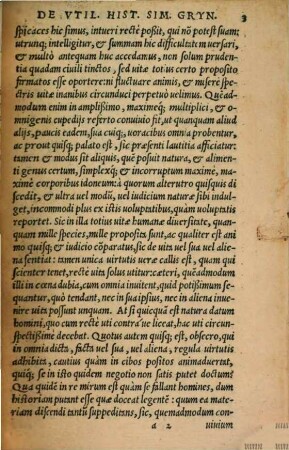 DE VTIL. HIST. SIM. GRYN. 3
spicaces hic simus, intueri recte possit, qui nõ potest suam;
utrunq; intelligitur, & summam hic difficultatem uersari,
& multò antequam huc accedamus, non solum prudentia
quadam ciuili tinctos, sed uitæ totius certo proposito
firmatos esse oportere: ni fluctuare animis, & misere spectris
uitæ inanibus circunduci perpetuò uelimus. Quẽadmodum
enim in amplissimo, maximeq; multiplici, &
omnigenis cupedijs referto conuiuio fit, ut quanquam aliud
alijs, paucis eadem, sua cuiq;, uoracibus omnia probentur,
ac prout quisq; palato est, sic præsenti lautitia afficiatur:
tamen & modus sit aliquis, quẽ posuit natura, & alimenti
genus certum, simplexq; & incorruptum maxime, maxime
corporibus idoneum: à quorum alterutro quisquis discedit,
& ultra uel modũ, uel iudicium naturæ sibi indulget,
incommodi plus ex istis uoluptatibus, quàm uoluptatis
reportet. Sic in illa totius uitæ humanæ diuersitate, quanquam
mille species, mille proposita sunt, ac qualiter est animo
quisq; & iudicio cõparatus, sic de uita uel sua uel aliena
sentiat: tamen unica uirtutis ueræ callis est, quam qui
scienter tenet, recte uita solus utitur: cæteri, quẽadmodum
illi in cœna dubia, cum omnia inuitent, quid potissimum sequantur,
quò tendant, nec in sua ipsius, nec in aliena inuenire
uita possunt unquam. At si quicquã est natura datum
homini, quo cum recte uti contra'ue liceat, hac uti circunspectissime
decebat. Quotus autem quisq; est, obsecro, qui
in omnia dicta, facta uel sua, uel aliena, regula uirtutis
adhibita, cautius quàm in cibos positos animaduertat,
quiq; se in isto quidem negotio non satis putet doctum?
Qua quidẽ in re mirum est quàm se fallant homines, dum
historiam putant esse quæ doceat legentẽ: quum ea materiam
discendi tantũ suppeditans, sic, quemadmodum con
a 2 uiuium